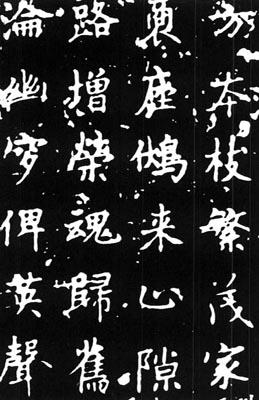 本枝繁茂家
奠座来心隙
路增榮魂歸舊
淪幽穸俾英聲